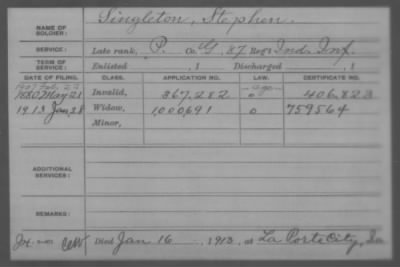 NAME OF SOLDIER: Singleton, Stephen.
SERVICE: Late rank, P. Co. G, 87 Reg't Ind. Inf.
TERM OF SERVICE: Enlisted , 1 Discharged , 1
DATE OF FILING. CLASS. APPLICATION NO. LAW. CERTIFICATE NO.
1907 Feb 23 age
1880 May 21 Invalid, 367.282 0 406.823
1913 Jan 28 Widow, 1000691 0 759564
Minor,
ADDITIONAL SERVICES:
REMARKS:
Died Jan 16 1913, at La Porte City, Ia